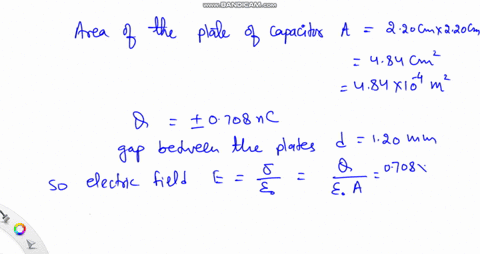 WWW.BANDICAM.COM
Area of the plate of capacitor A = 2.20cm×2.20cm
= 4.84 cm²
= 4.84 ×10⁻⁴ m²
Q = ± 0.708 nC
gap between the plates d = 1.20 mm
so electric field E = σ/ε₀ = Q/ε₀ A = 0.708×